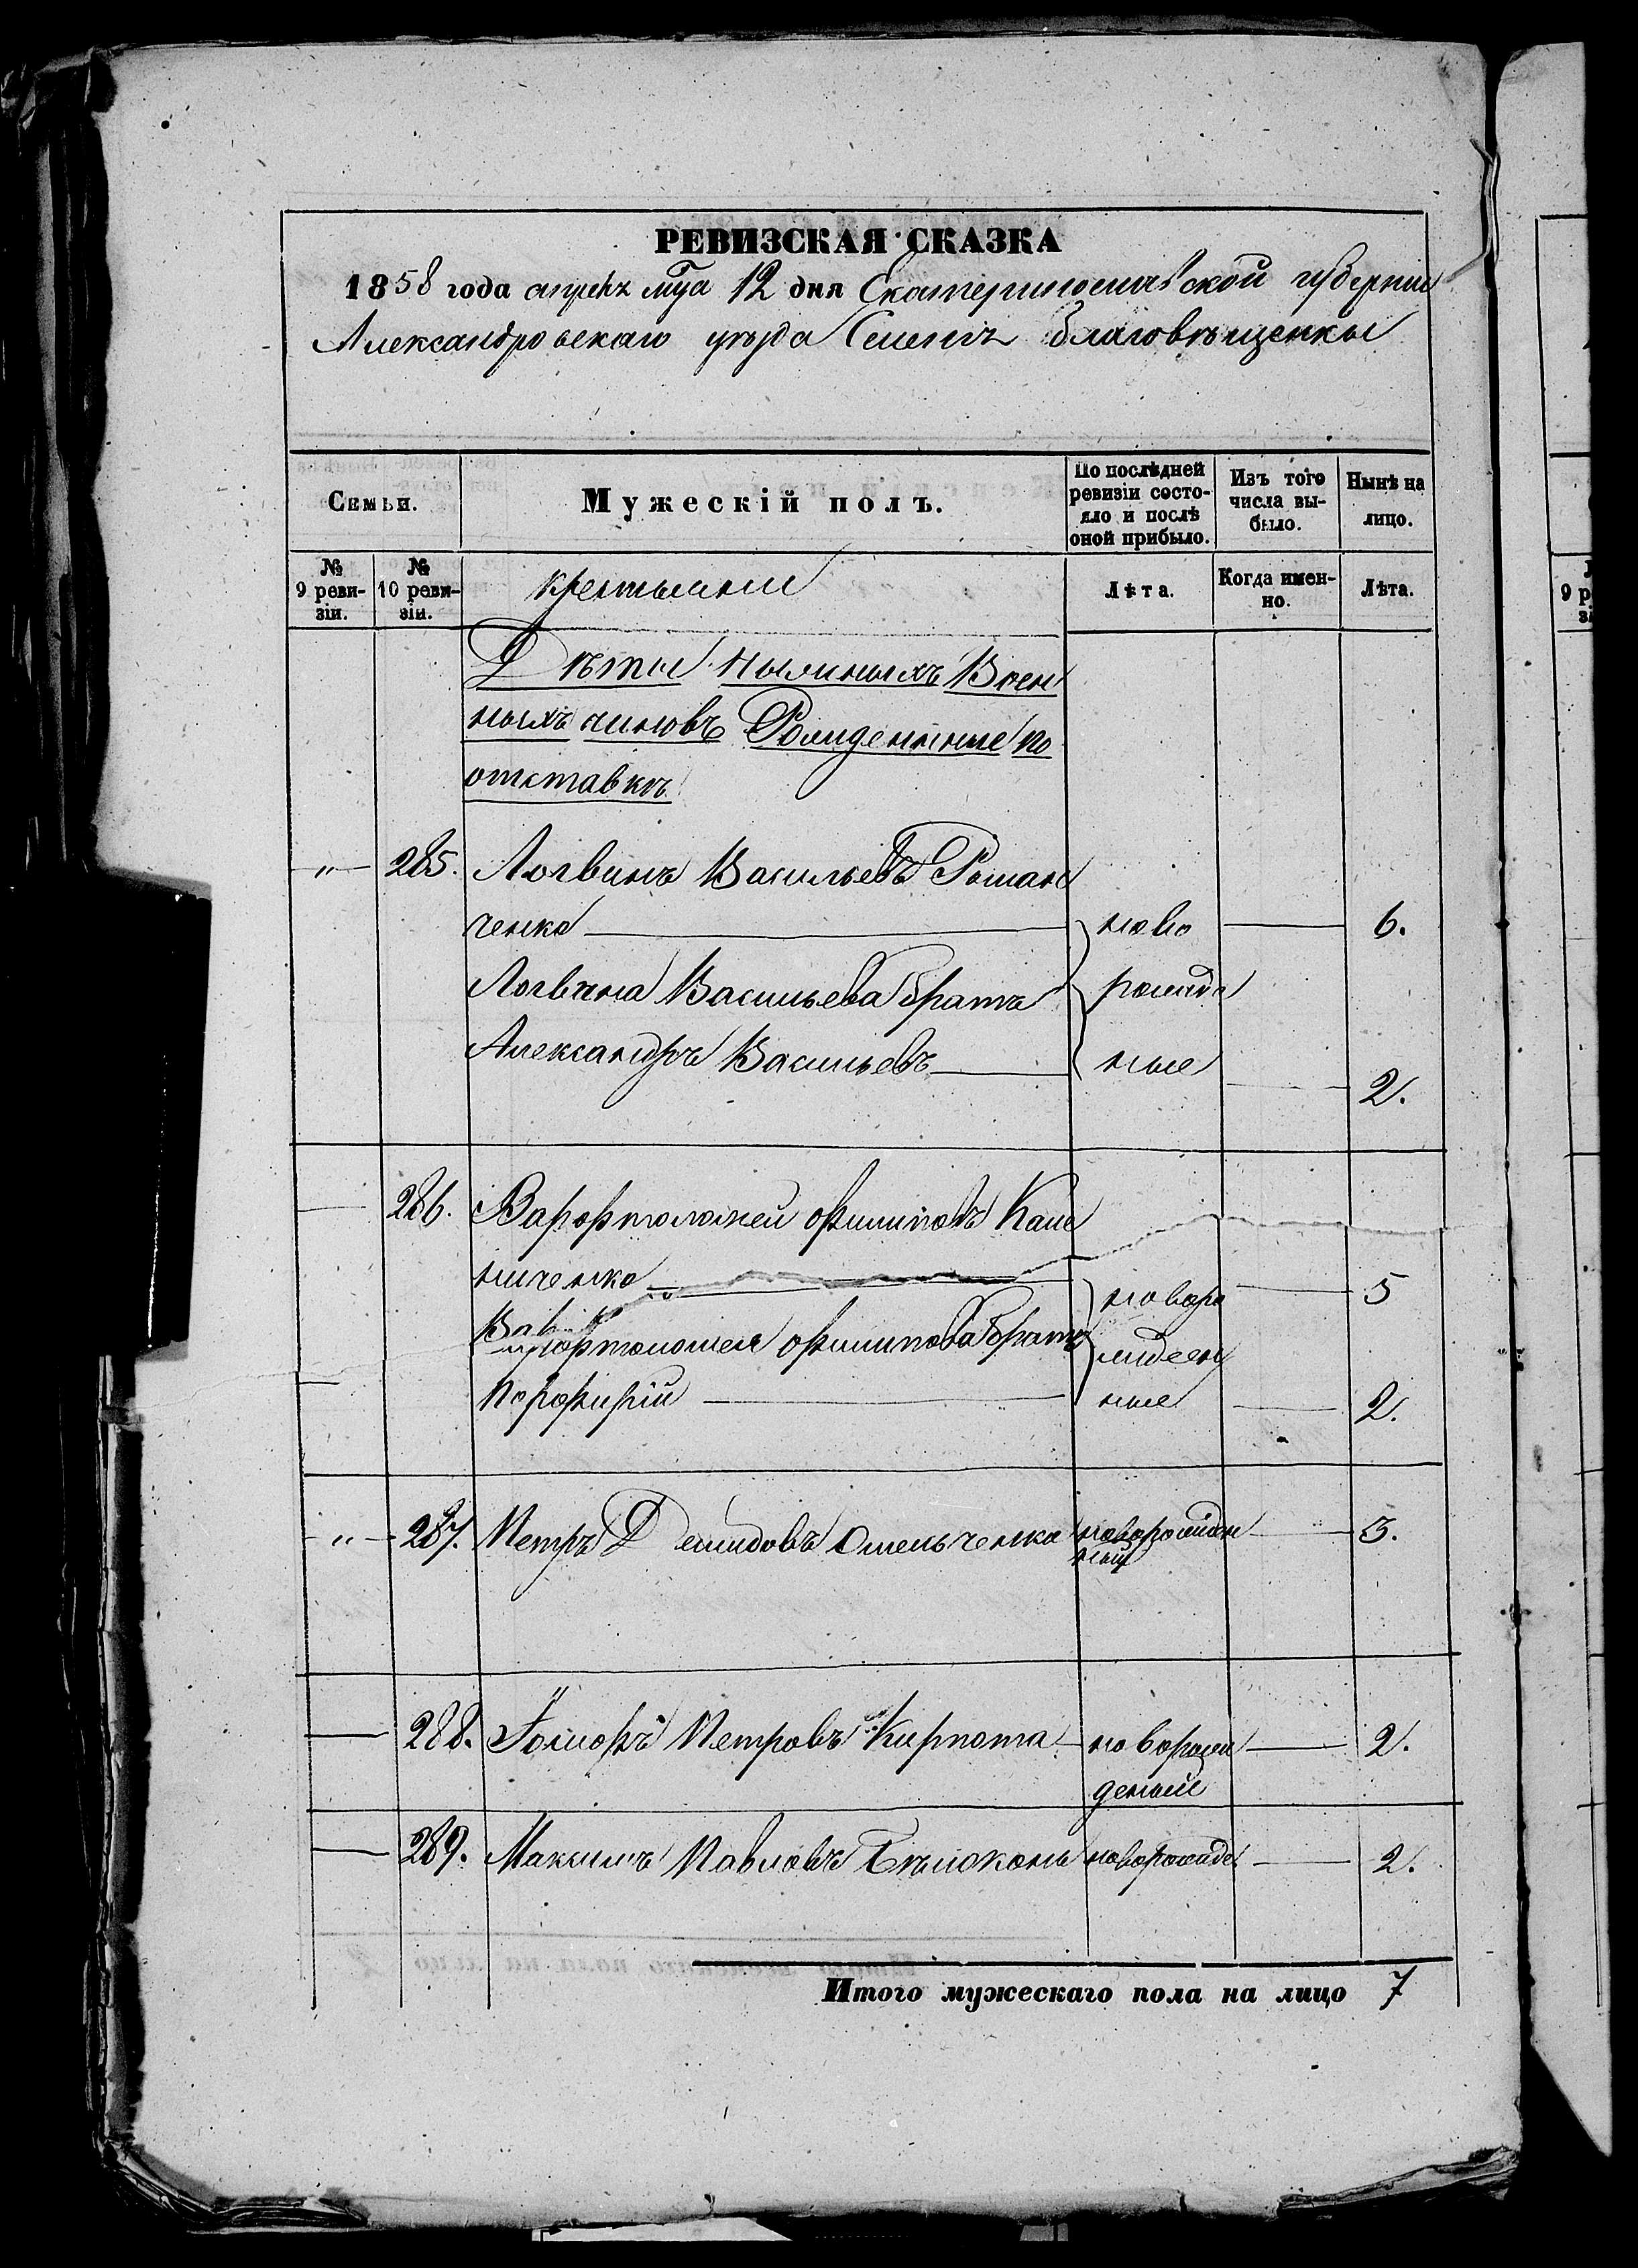 РЕВИЗСКАЯ СКАЗКА
1858 года апрѣля мца 12 дня Екатеринославской губерніи
Александровскаго уѣзда Селенія Благовѣщенки
Семьи.
Мужескій полъ.
По послѣдней
ревизіи состо-
яло и послѣ
оной прибыло.
Изъ того
числа вы-
было.
Нынѣ на
лицо.
№
9 реви-
зіи.
№
10 реви-
зіи.
крестьяни
Лѣта.
Когда имен-
но.
Лѣта.
9 р
зі
Дѣти нижнихъ Воен
ныхъ чиновъ Рожденные по
отставкѣ
„ 285. Логвинъ Васильевъ Роман
ченко ново 6.
Логвина Васильева братъ рожде
Александръ Васильевъ ные 2.
286. Варфоломей Филиповъ Кали
ниченко новоро 5
Варфоломея Филипова братъ жден
Порфирій ные 2.
„ 287. Петръ Демидовъ Омельченко новорожден 3.
ный
288. Іосифъ Петровъ Кирпота новорож 2.
деный
289. Максимъ Павловъ Бѣлоконь новорожде 2.
Итого мужескаго пола на лицо 7